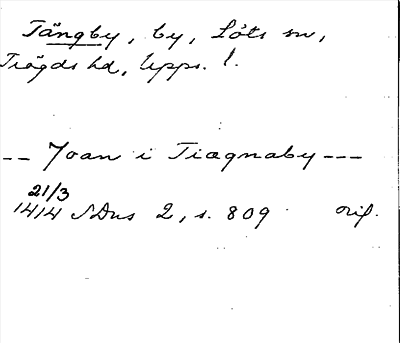 Tängby, by, Löts sn,
Trögds hd, Upps. l.
-- Joan i Tiægnaby ---
21/3
1414 SDns 2, s. 809 orig.